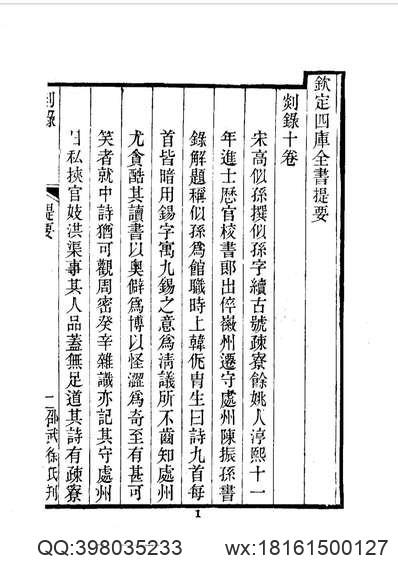 欽定四庫全書提要
剡錄十卷
宋高似孫撰似孫字續古號疎寮餘姚人淳熙十一
年進士歴官校書郎出倅徽州遷守處州陳振孫書
錄解題稱似孫爲館職時上韓侂胄生日詩九首每
首皆暗用錫字寓九錫之意爲淸議所不齒知處州
尤貪酷其讀書以奥僻爲博以怪澀爲奇至有甚可
笑者就中詩猶可觀周密癸辛雜識亦記其守處州
日私挾官妓洪渠事其人品蓋無足道其詩有疎寮
剡錄
提要
一
邵武徐氏刋
1
QQ:398035233
wx:18161500127